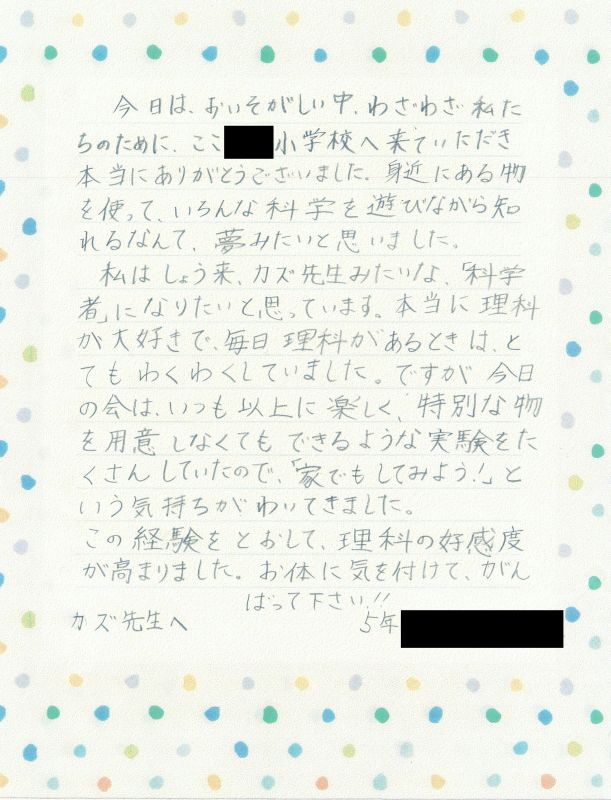 今日は、おいそがしい中、わざわざ私た
ちのために、ここ小学校へ来ていただき
本当にありがとうございました。身近にある物
を使って、いろんな科学を遊びながら知
れるなんて、夢みたいと思いました。
私はしょう来、カズ先生みたいな、「科学
者」になりたいと思っています。本当に理科
が大好きで、毎日理科があるときは、と
てもわくわくしていました。ですが今日
の会は、いつも以上に楽しく、特別な物
を用意しなくてもできるような実験をた
くさんしていたので、「家でもしてみよう!」と
いう気持ちがわいてきました。
この経験をとおして、理科の好感度
が高まりました。お体に気を付けて、がん
ばって下さい!!
カズ先生へ 5年